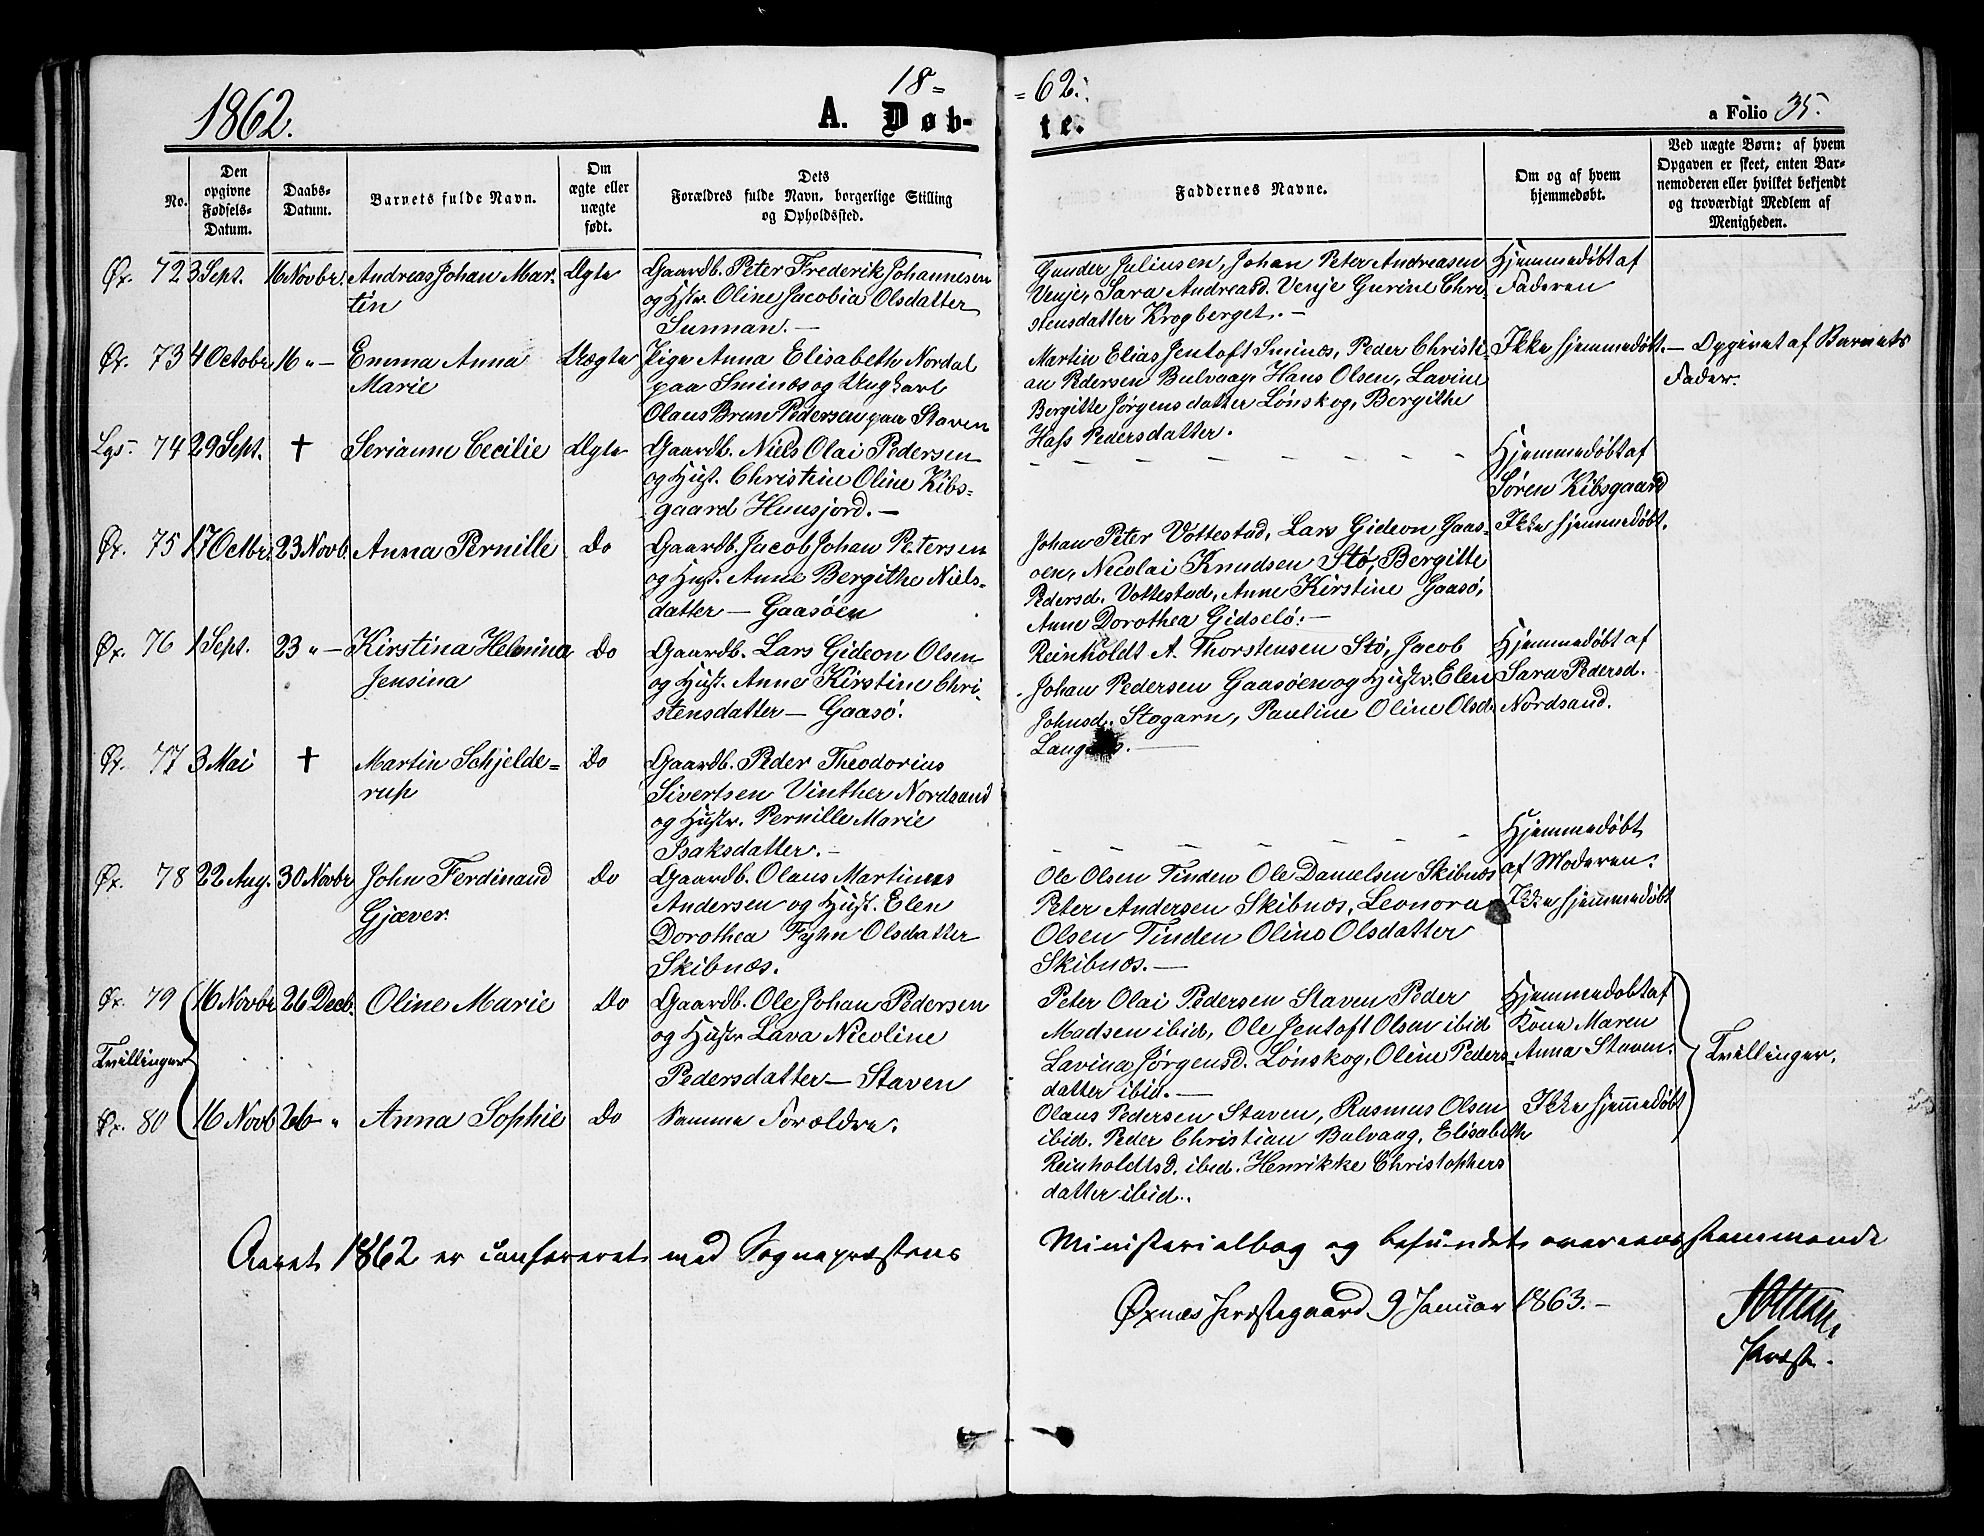 1862.
18=
A. Døb-
No.
Den opgivne Fødsels-Datum.
Daabs-Datum.
Barnets fulde Navn.
Om ægte eller uægte født.
Dets Forældres fulde Navn, borgerlige Stilling og Opholdssted.
Øx. 72 3 Sept. 16 Novbr. Andreas Johan Mar- Ægte Gaardb. Peter Frederik Johannesen
tin og Hstr. Oline Jacobia Olsdatter
Sunnan. —
Øx. 73 4 Octobr 16 " — Emma Anna Uægte Pige Anna Elisabeth Nordal
Marie paa Sminæs og Ungkarl
Olaus Brun Pedersen paa Staven
Lgs. 74 29 Sept. † Serianne Cecilie Ægte Gaardb. Niels Olai Pedersen
og Hust. Christine Oline Kibs-
gaard Hunsjord. —
Øx. 75 17 Octbr. 23 Novb. Anna Pernille do Gaardb. Jacob Johan Petersen
og Hust. Anne Bergithe Niels-
datter — Gaasøen
Øx. 76 1 Sept. 23 " — Kirstina Helmina do Gaardb. Lars Gideon Olsen
Jensina og Hust. Anne Kirstine Chri-
stensdatter — Gaasø.
Øx. 77 3 Mai † Martin Schjelde= do Gaardb. Peder Theodorius
rup Sivertsen Vinther Nordsand
og Hustr. Pernille Marie
Isaksdatter. —
Øx. 78 22 Aug. 30 Novbr John Ferdinand do Gaardb. Olaus Martinus
Gjæver. Andersen og Hust. Elen
Dorothea Fyhn Olsdatter
Skibnæs.
Øx. 79 16 Novbr 26 Decb. Oline Marie do Gaardb. Ole Johan Pedersen
og Hustr Lava Nicoline
Tvillinger
Pedersdatter — Staven
Øx. 80 16 Novb 26 " Anna Sophie do Samme Forældre.
Aaret 1862 er confereret med Sognepræstens
= 62.
te.
a Folio 35.
Faddernes Navne.
Om og af hvem hjemmedøbt.
Ved uægte Børn: af hvem Opgaven er skeet, enten Barnemoderen eller hvilket bekjendt og troværdigt Medlem af Menigheden.
Gunder Juliussen, Johan Peter Andreasen Hjemmedøbt af
Venje, Sara Andreasd. Venje Gurine Chri- Faderen
stensdatter Krogberget. —
Martin Elias Jentoft Sminæs, Peder Christi- Ikke hjemmedøbt. — Opgivet af Barnets
an Pedersen Bulvaag, Hans Olsen, Lavine Fader.
Bergitte Jørgensdatter Lønskog, Bergithe
Hass Pedersdatter.
Hjemmedøbt af
Søren Kibsgaard
Johan Peter Vottestad, Lars Gideon Gaas- Ikke hjemmedøbt.
øen, Nicolai Knudsen Stø, Bergitte
Pedersd. Vottestad, Anne Kirstine Gaasø,
Anne Dorothea Gidselø. —
Reinholdt A. Thorstensen Stø, Jacob Hjemmedøbt af
Johan Pedersen Gaasøen og Hustr. Elen Sara Pedersd.
Johnsd. Støgarn, Pauline Oline Olsd. Nordsand.
Hjemmedøbt
af Moderen.
Ole Olsen Tinden Ole Danielsen Skibnæs
Peter Andersen Skibnæs, Leonora Ikke hjemmedøbt
Olsen Tinden Oline Olsdatter
Skibnæs. —
Peter Olai Pedersen Staven Peder Hjemmedøbt af
Madsen ibid, Ole Jentoft Olsen ibid Kone Maren
Lavina Jørgensd. Lønskog, Oline Peders- Anna Staven.
datter ibid. —
Tvillinger.
Olaus Pedersen Staven, Rasmus Olsen Ikke hjemmedøbt
ibid. Peder Christian Bulvaag, Elisabeth
Reinholdtsd. ibid. Henrikke Christophers
datter ibid.
Ministerialbog og befundet overeensstemmende
Øxnæs Præstegaard 9 Januar 1863. —
Præst.